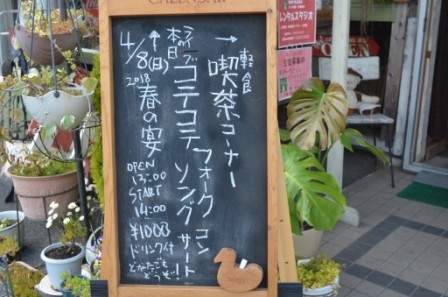 レンタルスタジオ
→
軽食
喫茶コーナー
本日の
ライブ
コテコテ
フォーク
ソング
コンサート
4/8(日)
2018
春の宴
OPEN
13:00
START
14:00
¥1000
ドリンク付
どなたでも
どうぞ!